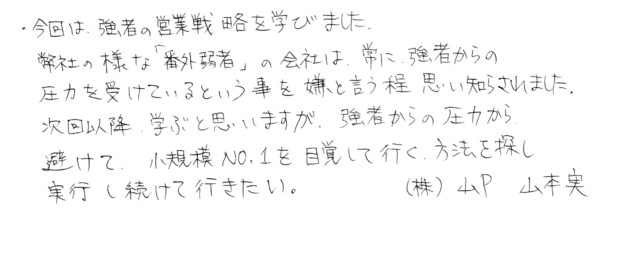 ・今回は、強者の営業戦略を学びました。
弊社の様な「番外弱者」の会社は、常に、強者からの
圧力を受けているという事を嫌と言う程思い知らされました。
次回以降、学ぶと思いますが、強者からの圧力から
避けて、小規模NO.1を目覚して行く、方法を探し
実行し続けて行きたい。　(株)山P　山本実